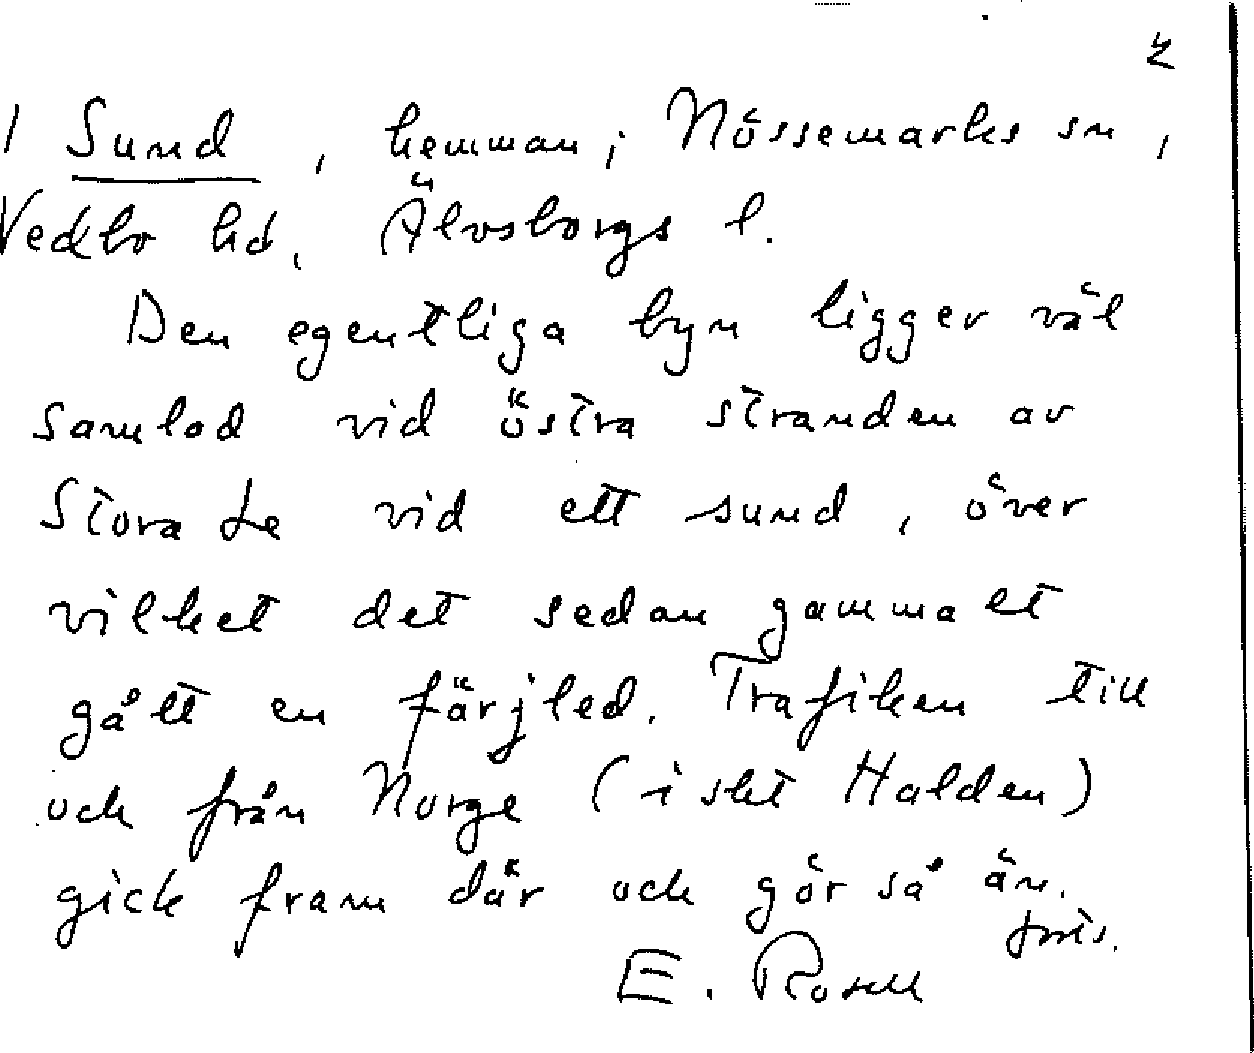 2
1 Sund, hemman i Nössemarks sn,
Vedbo hd, Älvsborgs l.
Den egentliga byn ligger väl
samlad vid östra stranden av
Stora Le vid ett sund, över
vilket det sedan gammalt
gått en färjled. Trafiken till
och från Norge (i sht Halden)
gick fram där och gör så än.
forts.
E. Rosell